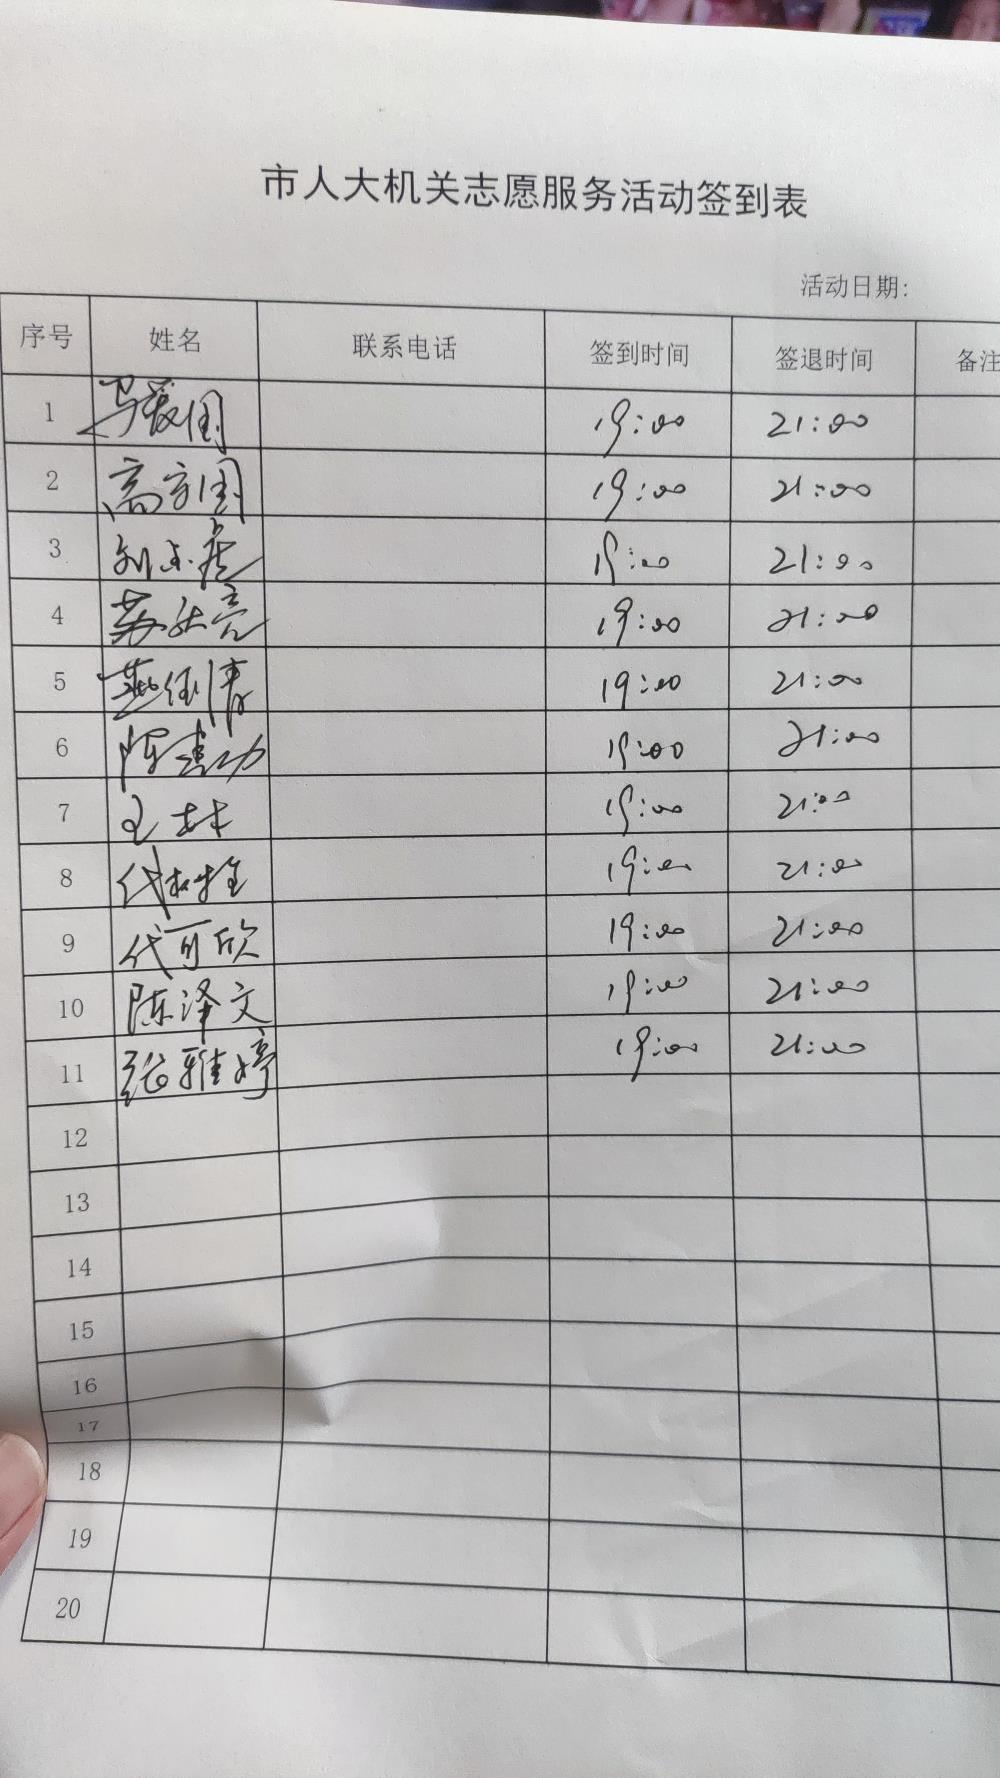 市人大机关志愿服务活动签到表
活动日期:
序号 姓名 联系电话 签到时间 签退时间 备注
1 马爱国 19:00 21:00
2 高方国 19:00 21:00
3 刘 19:00 21:00
4 苏 亮 19:00 21:00
5 燕 清 19:00 21:00
6 陈志功 19:00 21:00
7 王林 19:00 21:00
8 代 19:00 21:00
9 代可欣 19:00 21:00
10 陈泽文 19:00 21:00
11 张雅婷 19:00 21:00
12
13
14
15
16
17
18
19
20